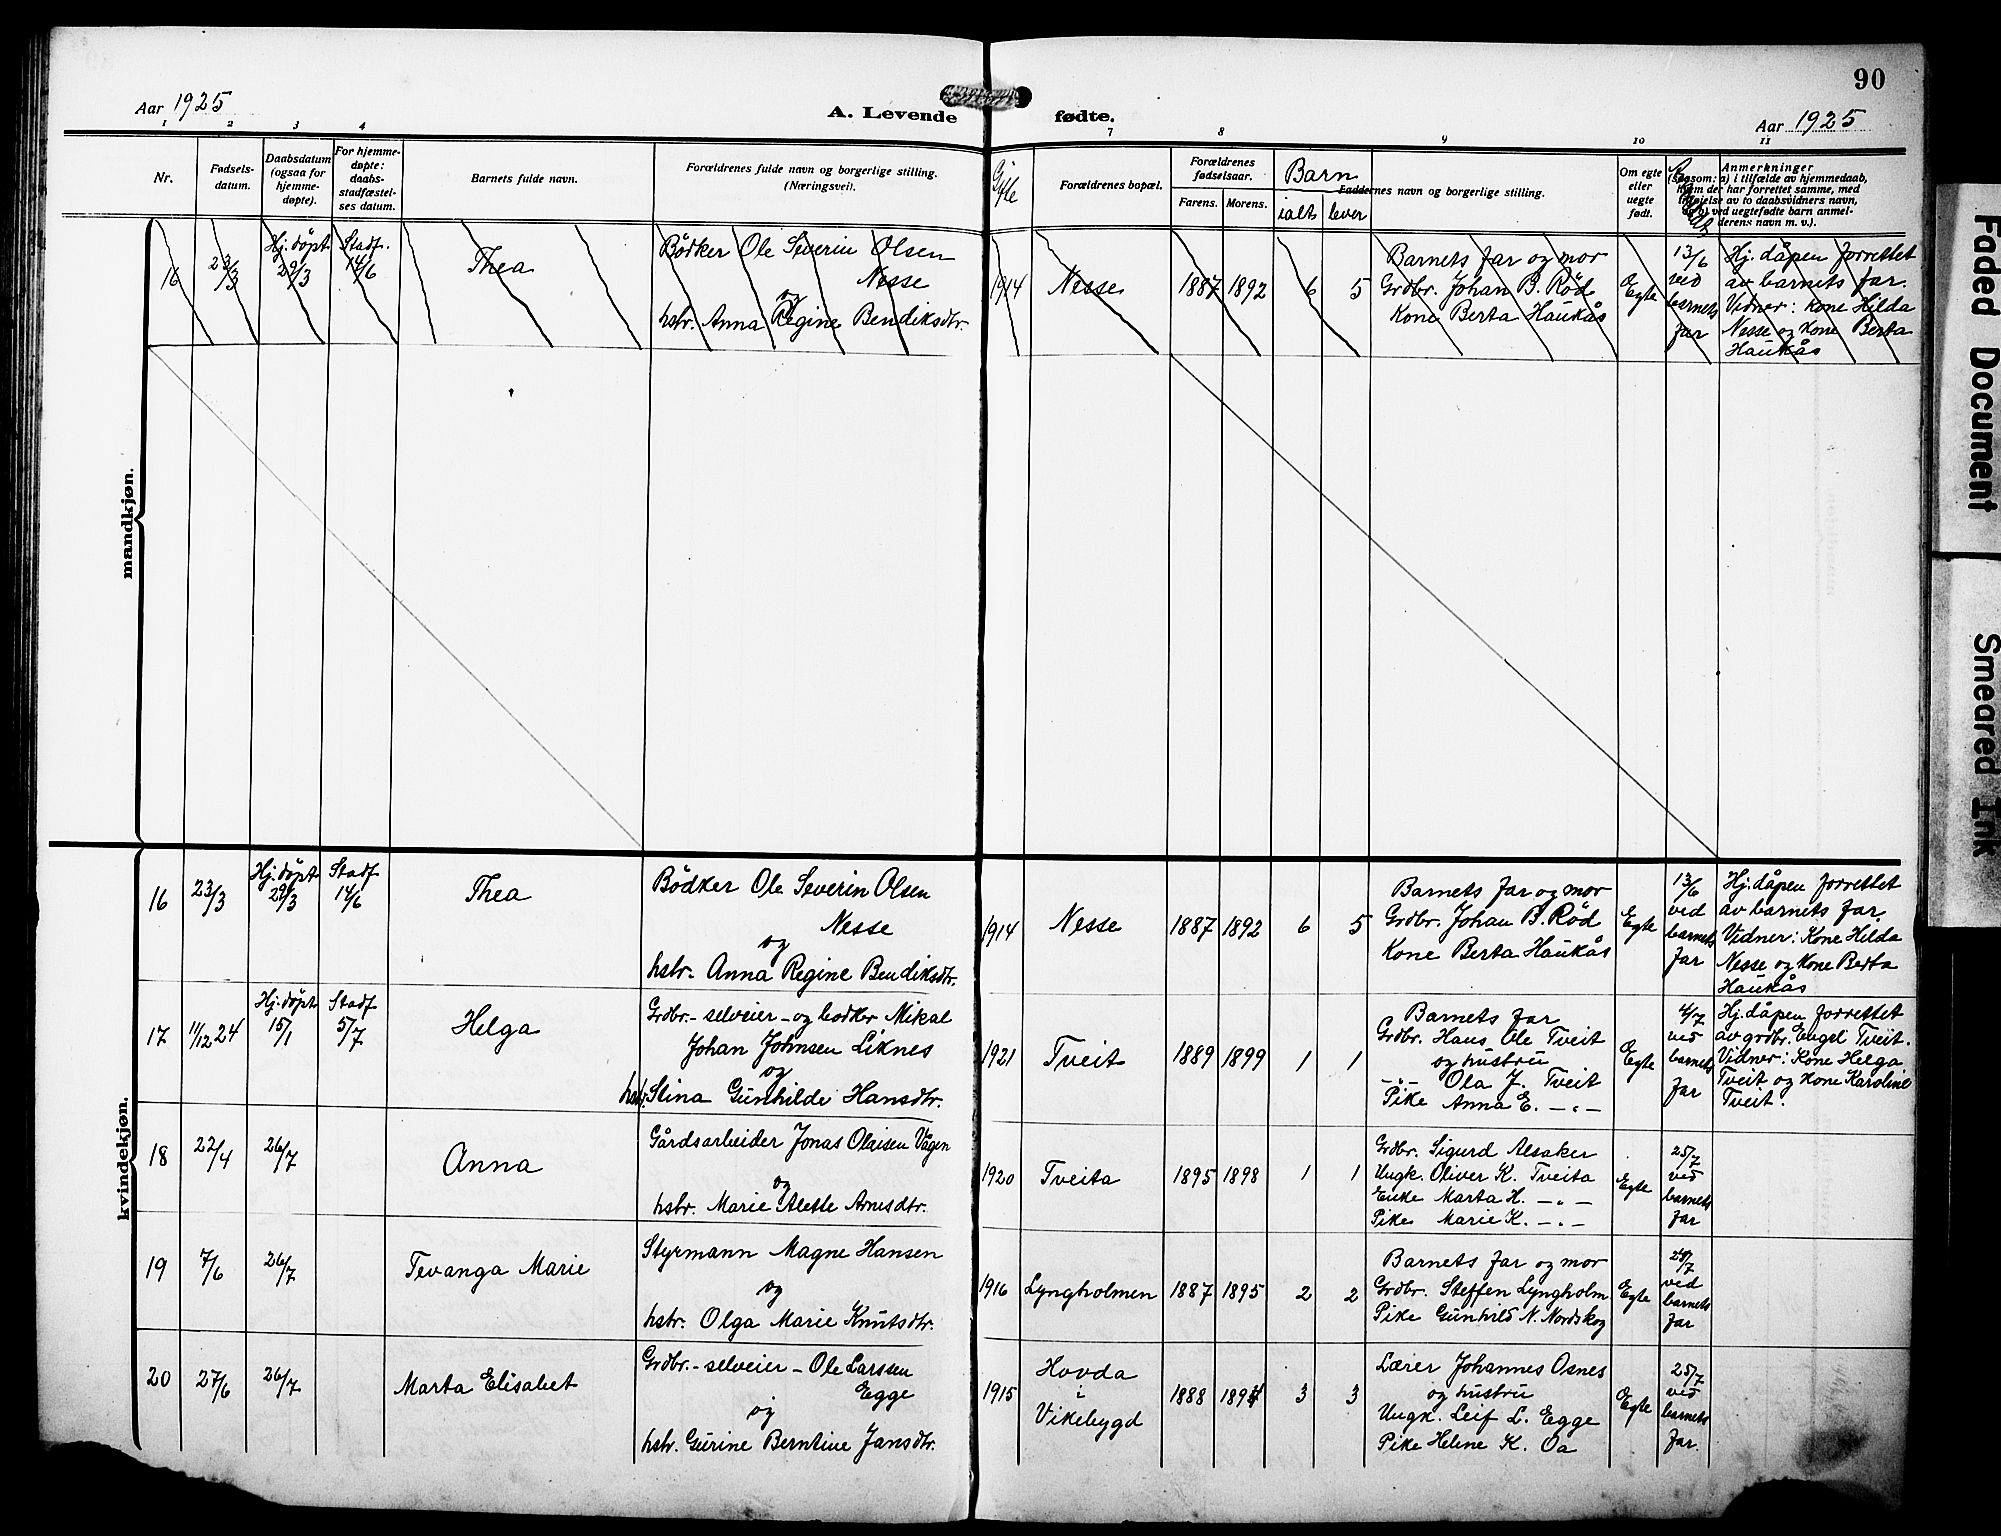 90
Aar 1925
A. Levende fødte.
Aar 1925
1 2 3 4 7 8 9 10 11
Nr.
Fødsels-
datum.
Daabsdatum
(ogsaa for
hjemme-
døpte).
For hjemme-
døpte:
daabs-
stadfæstel-
ses datum.
Barnets fulde navn.
Forældrenes fulde navn og borgerlige stilling.
(Næringsvei).
Gifte
Forældrenes bopæl.
Forældrenes
fødselsaar.
Farens. Morens.
Barn
ialt lever
Faddernes navn og borgerlige stilling.
Om egte
eller
uegte
født.
Anmerkninger
(saasom: a) i tilfælde av hjemmedaab,
hvem der har forrettet samme, med
tilføielse av to daabsvidners navn,
og b) ved uegtefødte barn anmel-
derens navn m. v.).
mandkjøn.
16 23/3 Hj. döpt 29/3 Stadf. 14/6 Thea
Bödker Ole Severin Olsen
Nesse
og
hstr. Anna Regine Bendiksdtr.
1914 Nesse 1887 1892 6 5
Barnets far og mor
Grdbr. Johan B. Röd
Kone Berta Haukås
Egte
13/6
ved
barnets
far
Hj. dåpen forrettet
av barnets far.
Vidner: Kone Hilda
Nesse og Kone Berta
Haukås
kvindekjøn.
16 23/3 Hj. döpt 29/3 Stadf 14/6 Thea
Bödker Ole Severin Olsen
Nesse
og
hstr. Anna Regine Bendiksdtr.
1914 Nesse 1887 1892 6 5
Barnets far og mor
Grdbr. Johan B. Röd
Kone Berta Haukås
Egte
13/6
ved
barnets
far
Hj. dåpen forrettet
av barnets far.
Vidner: Kone Hilda
Nesse og Kone Berta
Haukås
17 11/12 24 Hj. döpt 15/1 Stadf 5/7 Helga
Grdbr. - selveier - og bødker Mikal
Johan Johnsen Liknes
og
hstr. Stina Gunhilde Hansdtr.
1921 Tveit 1889 1899 1 1
Barnets far
Grdbr. Hans Ole Tveit
og hustru
-"- Ola J. Tveit
Pike Anna E. -"-
Egte
4/7
ved
barnets
far
Hj. dåpen forrettet
av grdbr. Engel Tveit.
Vidner: Kone Helga
Tveit og Kone Karoline
Tveit.
18 22/4 26/7 Anna
Gårdsarbeider Jonas Olaisen Vågen
og
hstr. Marie Alette Arnesdtr.
1920 Tveita 1895 1898 1 1
Grdbr. Sigurd Alsaker
Ungk. Oliver K. Tveita
Enke Marta H. -"-
Pike Marie K. -"-
Egte
25/7
ved
barnets
far
19 7/6 26/7 Tevanga Marie
Styrmann Magne Hansen
og
hstr. Olga Marie Knutsdtr.
1916 Lyngholmen 1887 1895 2 2
Barnets far og mor
Grdbr. Steffen Lyngholm
Pike Gunhild N. Nordskog
Egte
ved
barnets
far
20 27/6 26/7 Marta Elisabet
Grdbr. - selveier - Ole Larssen
Egge
og
hstr. Gurine Berntine Jansdtr.
1915
Hovda
i
Vikebygd
1888 1894 3 3
Lærer Johannes Osnes
og hustru
Ungk. Leif L. Egge
Pike Helene K. Oa
Egte
25/7
ved
barnets
far.
Faded Document
Smeared Ink